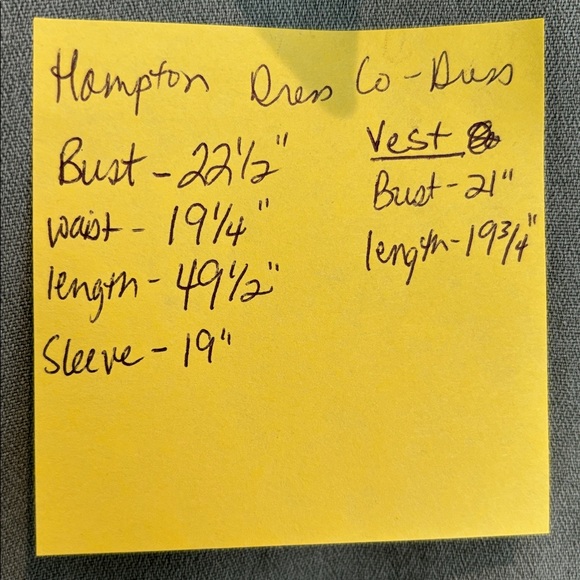 Hampton Dress Co-Dress
Bust - 22 1/2"
waist - 19 1/4"
length - 49 1/2"
Sleeve - 19"
Vest
Bust - 21"
length - 19 3/4"